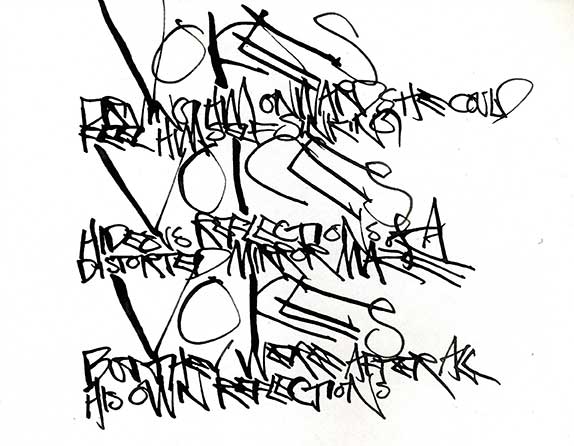 VOICES
DRIVING HIM ONWARD & HE COULD
FEEL HIMSELF SINKING
VOICES
HIDEOUS REFLECTIONS OF A
DISTORTED MIRROR MAZE
VOICES
BUT THEY WERE AFTER ALL
HIS OWN REFLECTIONS